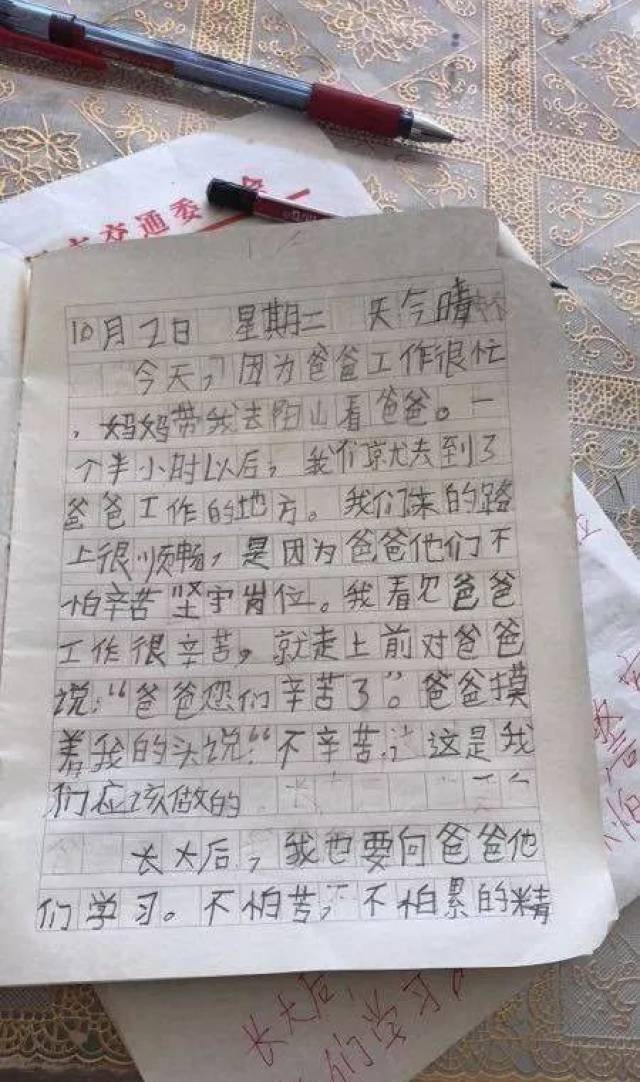 市交通委
10月1日 星期二 天今晴
今天，因为爸爸工作很忙
，妈妈带我去阳山看爸爸。一
个半小时以后，我们就去到了
爸爸工作的地方。我们来的路
上很顺畅，是因为爸爸他们不
怕辛苦坚守岗位。我看见爸爸
工作很辛苦，就走上前对爸爸
说：“爸爸您们辛苦了”。爸爸摸
着我的头说：“不辛苦，这是我
们应该做的
长大后，我也要向爸爸他
们学习。不怕苦，不怕累的精
长大后，
们学习